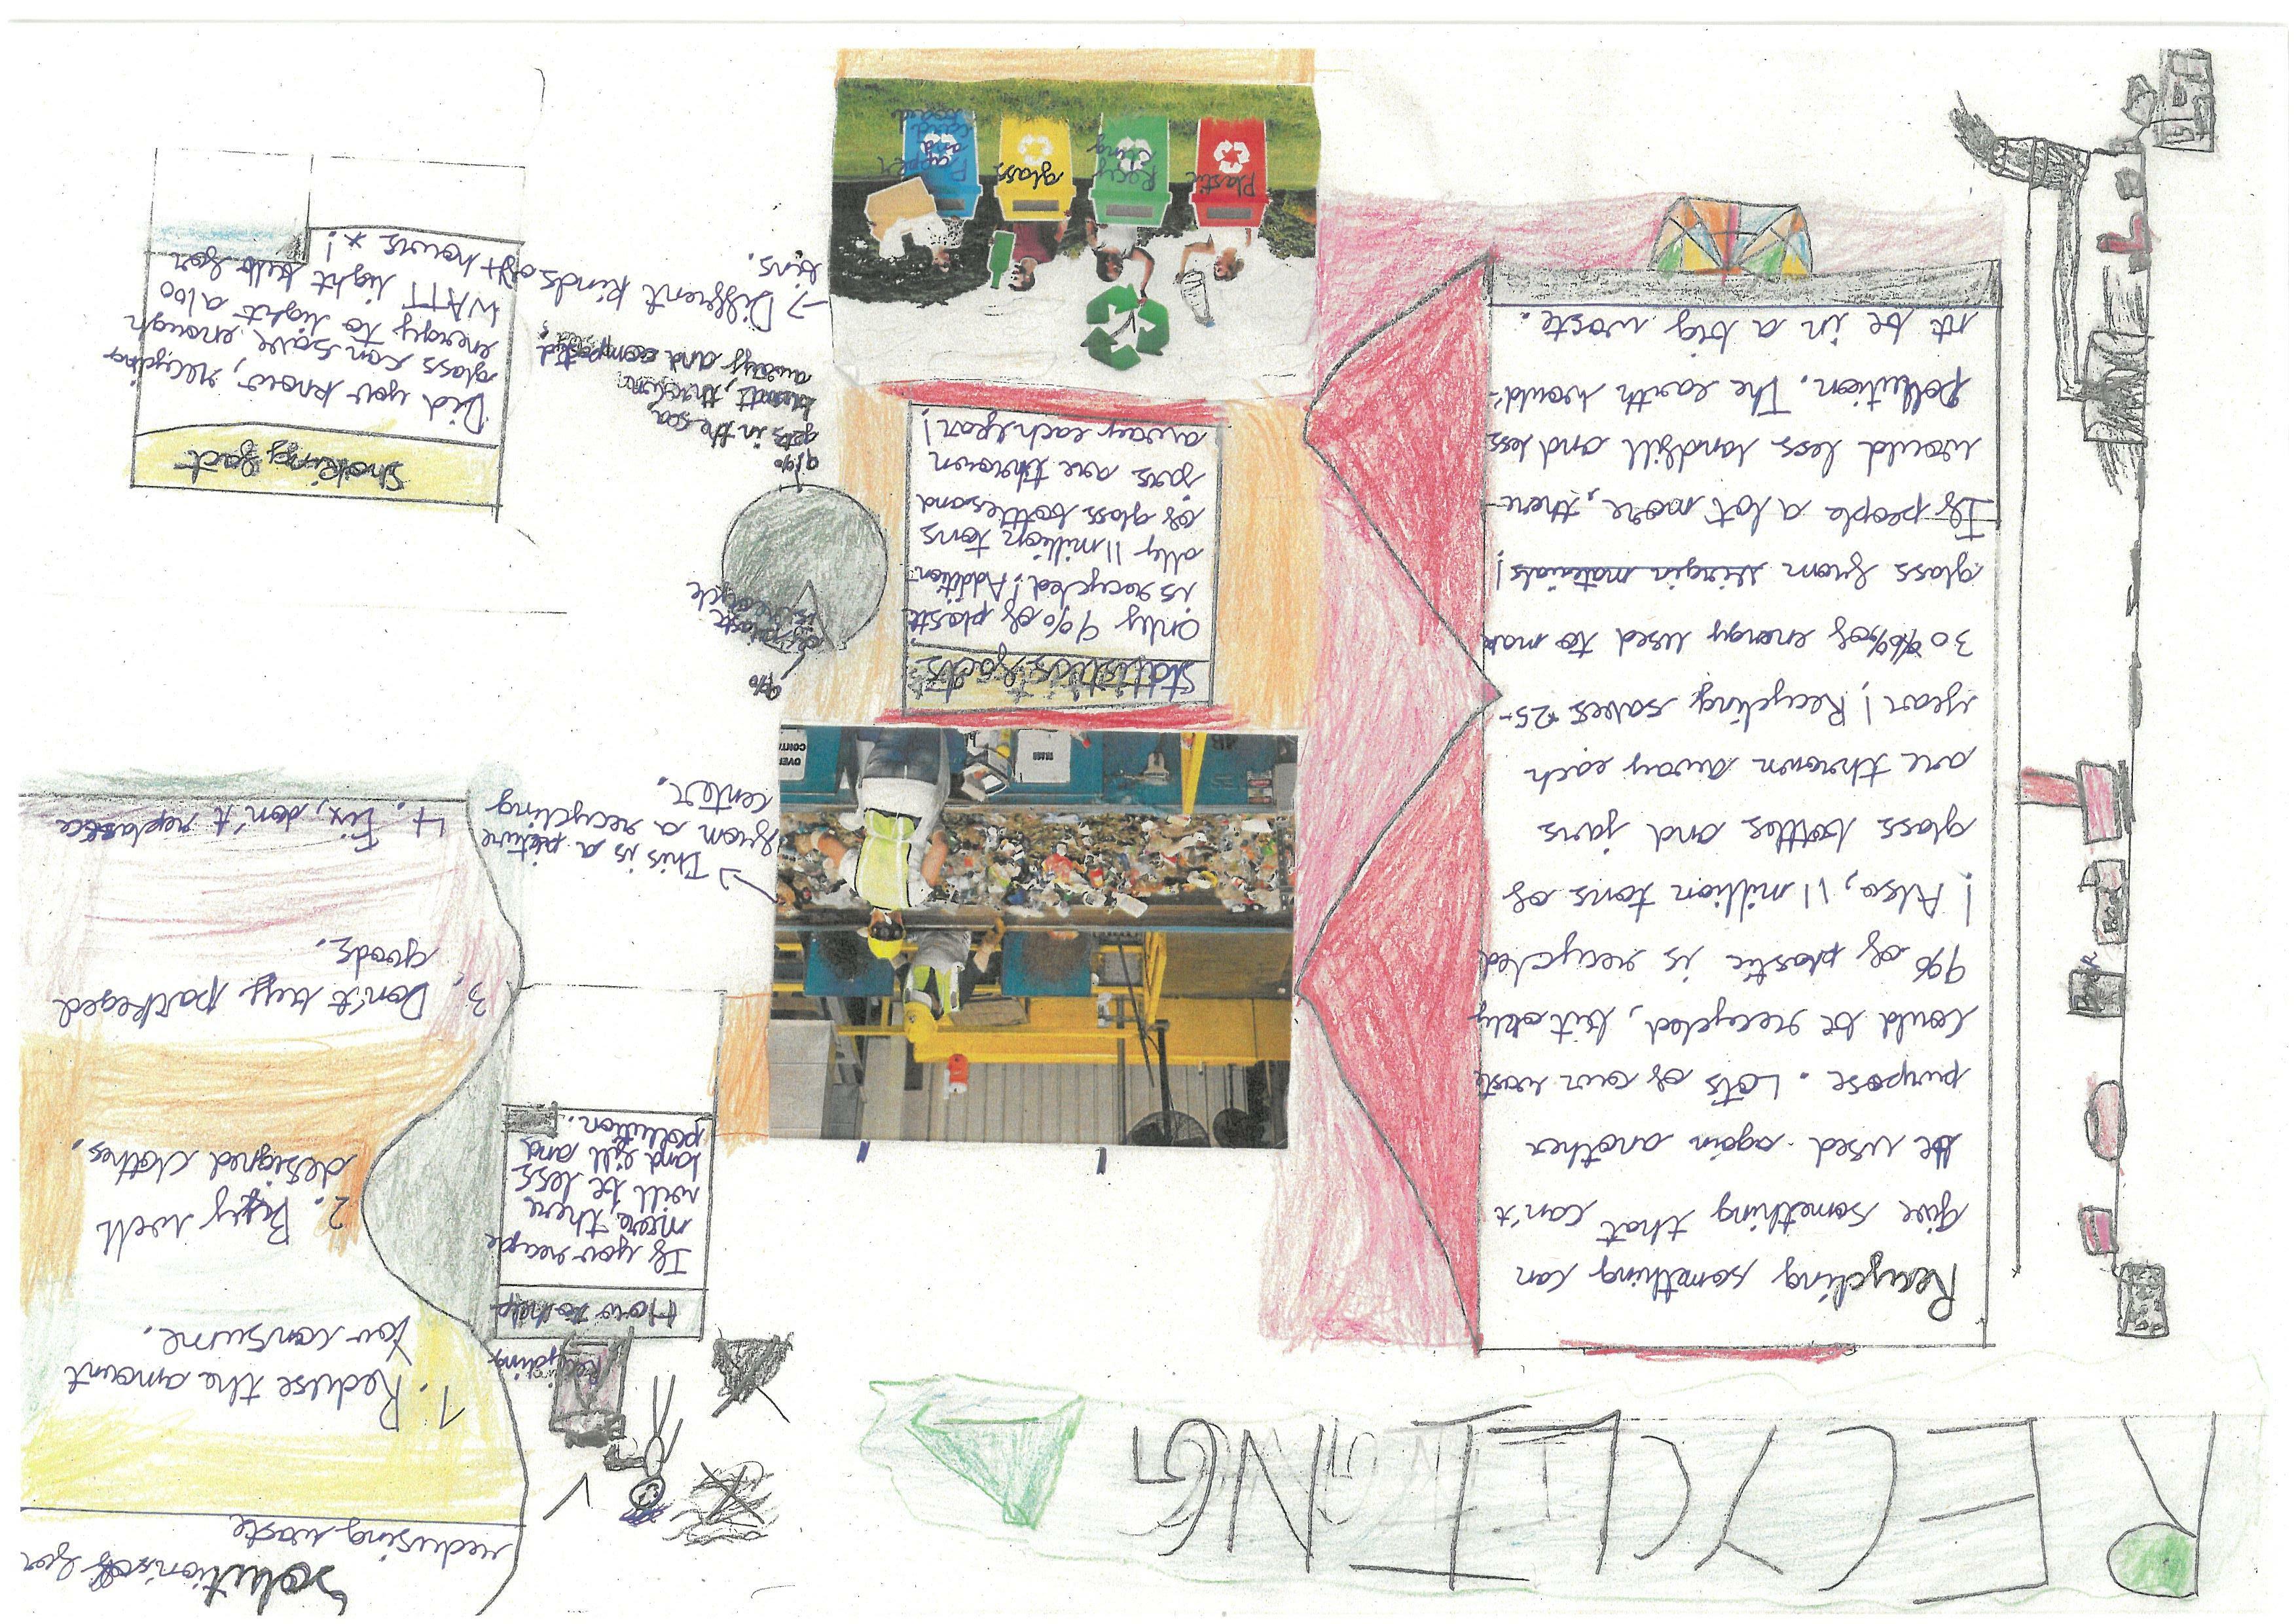 RECYCLING
Recycling something can
give something that can't
be used again another
purpose. Lots of our waste
could be recycled, but only
9% of plastic is recycled
! Also, 11 million tons of
glass bottles and jars
are thrown away each
year! Recycling saves 25-
30% of energy used to mak
glass from virgin materials!
If people a lot more, there
would less landfill and less
pollution. The earth would-
nt be in a big waste.
→ This is a picture
from a recycling
center.
OVER
CONTA
Statistics facts
Only 9% of plastic
is recycled! Addition
ally 11 million tons
of glass bottles and
jars are thrown
away each year!
9%
of plastic
is recycle
91%
gets in the sea
burnt, thrown
away and composted
Plastic
Recy
cling
glass
Papper
and
card
board
→ Different kinds of
bins.
Recycling
How to help
If you recycle
more, there
will be less
land fill and
pollution.
Solutions for
redusing waste
1. Reduse the amount
You consume.
2. Buy well
designed clothes.
3. Don't buy packeged
goods.
4. Fix, don't replace
Shoking fact
Did you know, recycling
glass can save enough
energy to light a 100
WATT light bulb for
4 hours *!